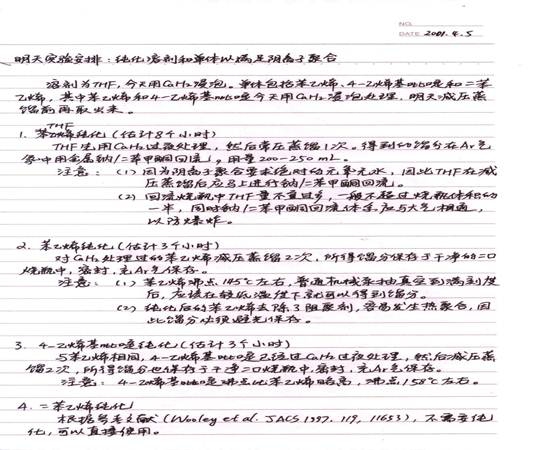 NO.
DATE 2001.4.5
明天实验安排：纯化溶剂和单体以满足阴离子聚合
溶剂为THF，今天用CaH₂浸泡。单体包括苯乙烯、4-乙烯基吡啶和二苯
乙烯，其中苯乙烯和4-乙烯基吡啶今天用CaH₂浸泡处理，明天减压蒸
馏前再取出来。
1. THF纯化（估计8个小时）
THF先用CaH₂过夜处理，然后常压蒸馏1次。得到的馏分在Ar气
氛中用金属钠/二苯甲酮回流，用量200-250mL。
注意：（1）因为阴离子聚合要求绝对的无氧无水，因此THF在减
压蒸馏后应马上进行钠/二苯甲酮回流。
（2）回流烧瓶中THF量不宜过多，一般不超过烧瓶体积的
一半，同时钠/二苯甲酮回流体系应与大气相通，
以防爆炸。
2. 苯乙烯纯化（估计3个小时）
对CaH₂处理过的苯乙烯减压蒸馏2次，所得馏分保存于干净的二口
烧瓶中，密封，充Ar气保存。
注意：（1）苯乙烯沸点145℃左右，普通机械泵抽真空到满刻度
后，应该在较低温度下就可以得到馏分。
（2）纯化后的苯乙烯去除了阻聚剂，容易发生热聚合，因
此馏分必须避光保存。
3. 4-乙烯基吡啶纯化（估计3个小时）
与苯乙烯相同，4-乙烯基吡啶已经过CaH₂过夜处理，然后减压蒸
馏2次，所得馏分也保存于干净二口烧瓶中，密封，充Ar气保存。
注意：4-乙烯基吡啶沸点比苯乙烯略高，沸点158℃左右。
4. 二苯乙烯纯化
根据参考文献（Wooley et al. JACS 1997, 119, 11653），不需要纯
化，可以直接使用。